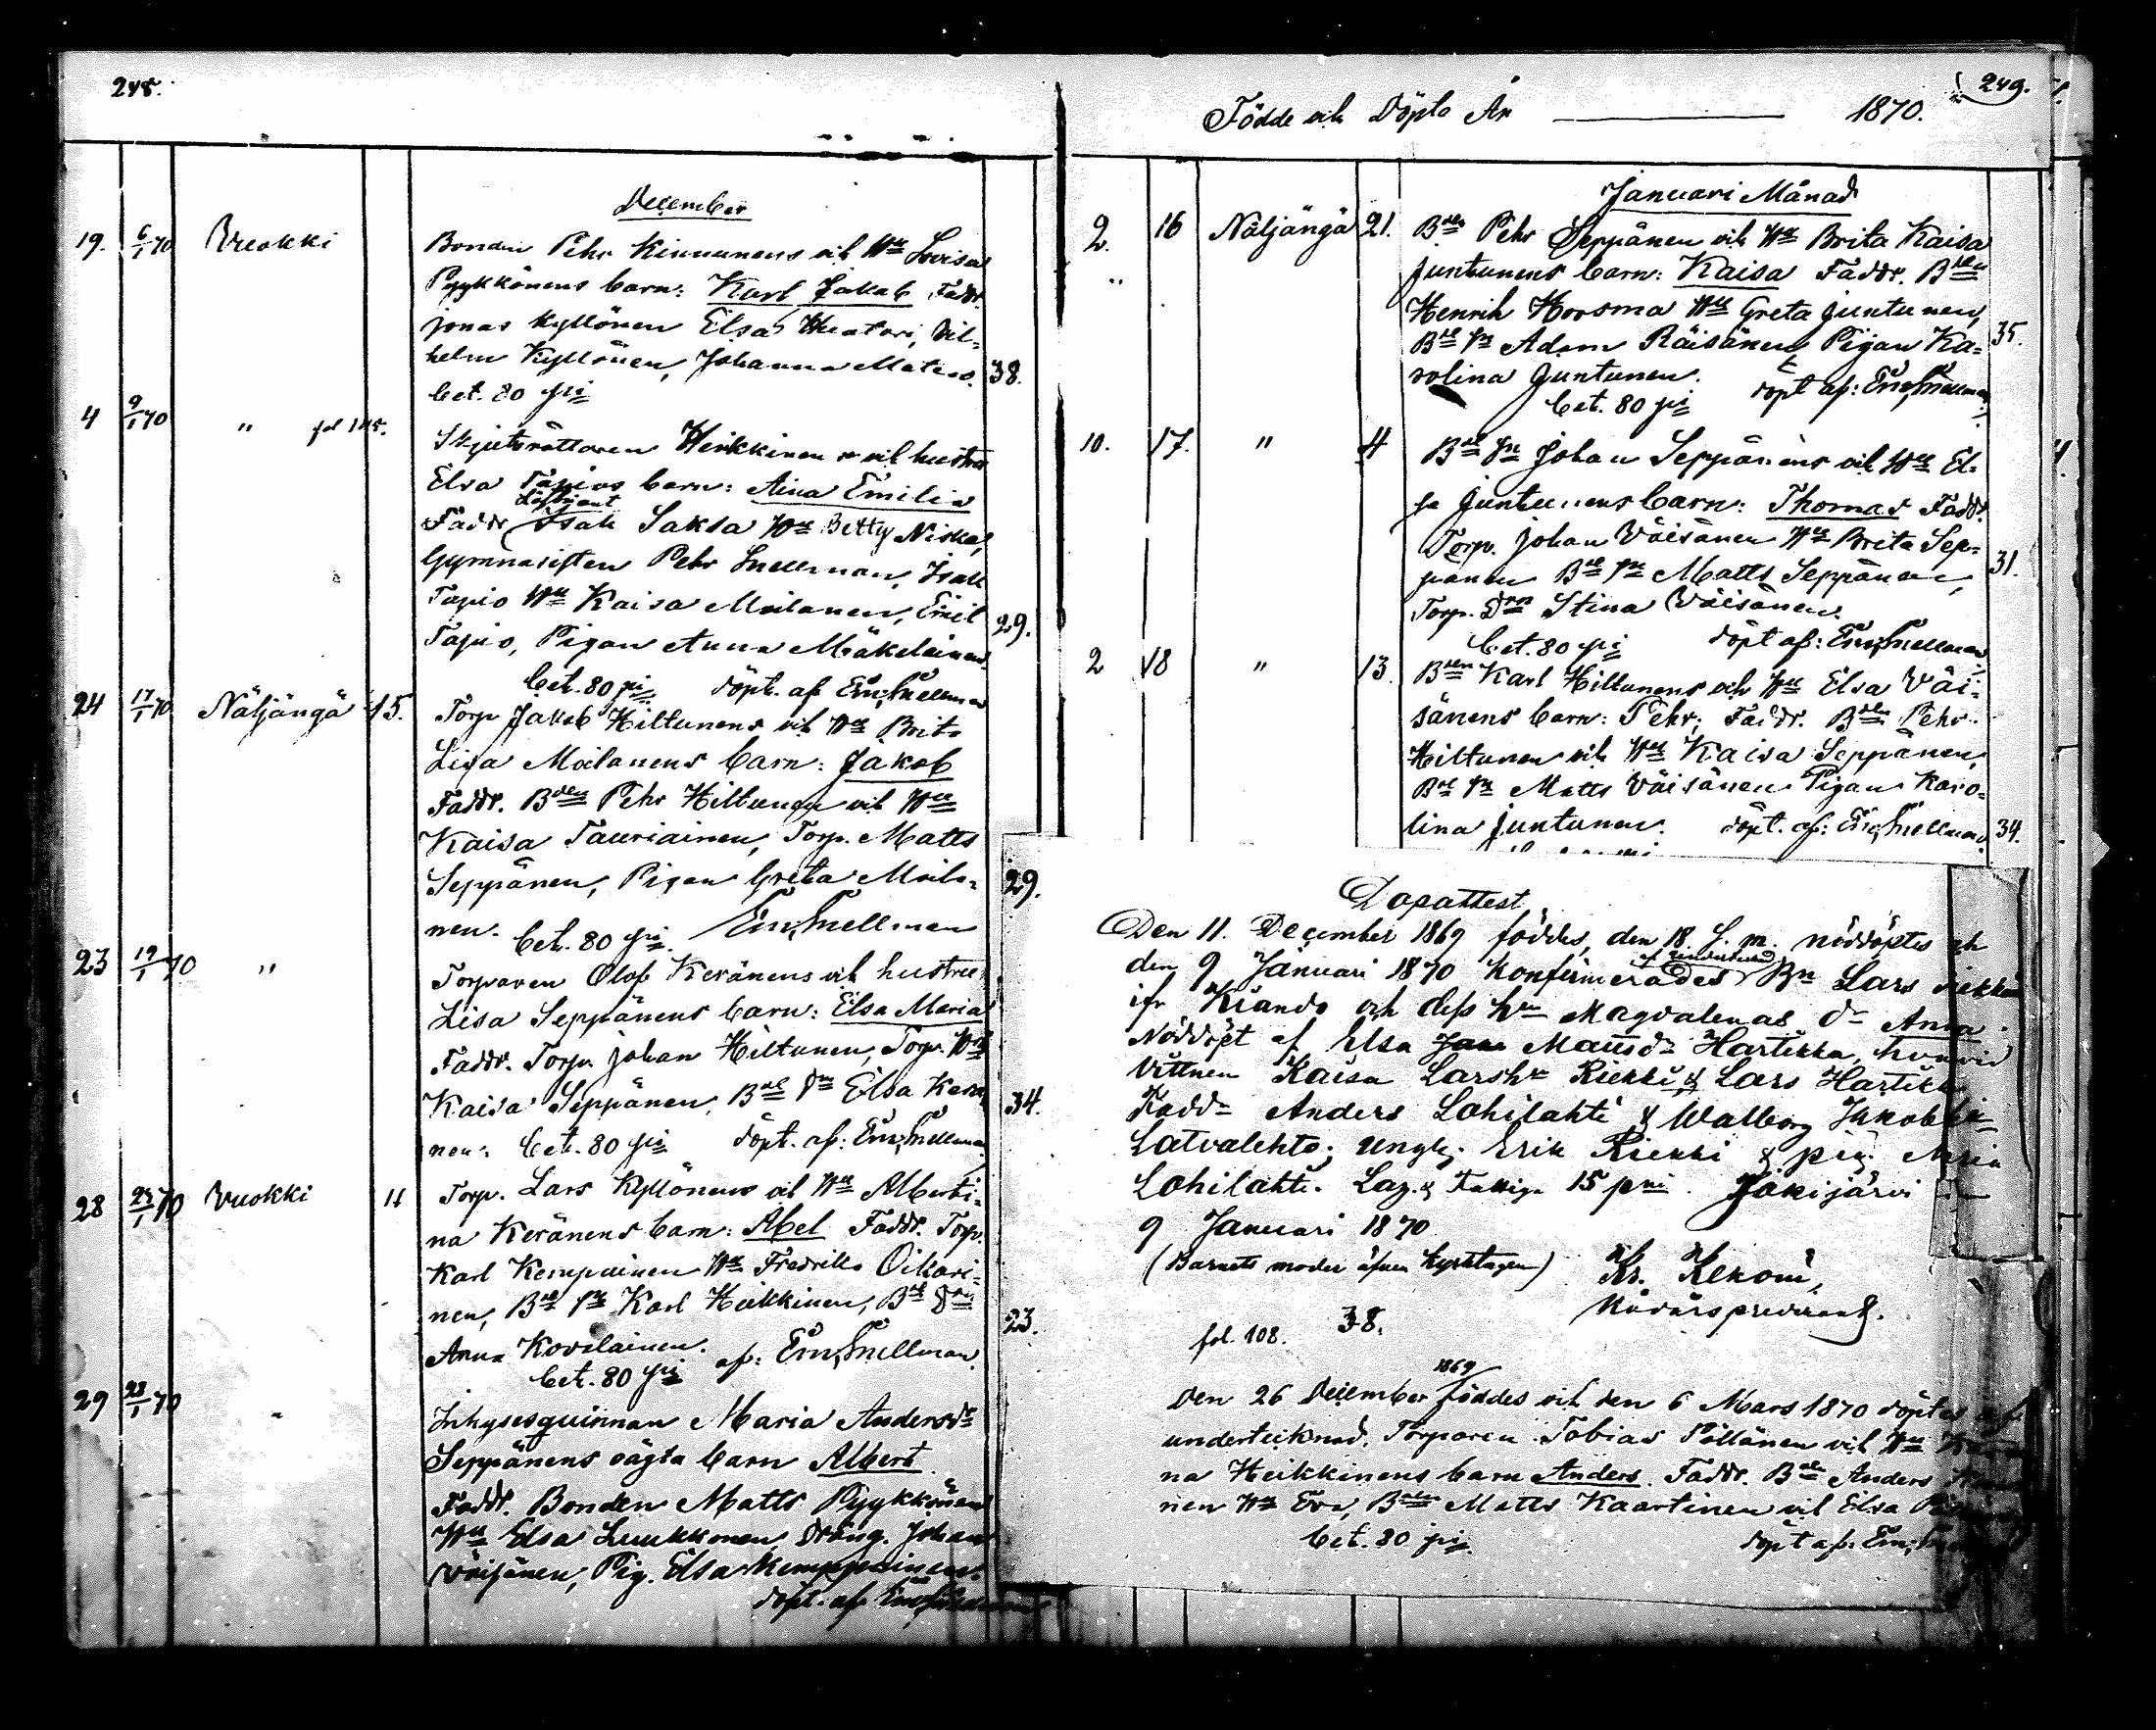 248.
December
19. 6/1 70 Vuokki Bonden Pehr Kinnunens och Hu Lovisa
Pyykkönens barn: Karl Jakob Faddr.
Jonas Kyllönen Elsa Vil-
helm Kyllönen, Johanna Matero. 38.
bet. 80 pi
4 9/1 70 " fol 145. Skjutsrättaren Heikkinen och hustru
Elsa Tapios barn: Aina Emilia
Löjtnant
Faddr Isak Saksa Hu Betty Niska,
Gymnasisten Pehr Snellman, Isak
Tapio Hu Kaisa Moilanen, Emil 29.
Tapio, Pigan Anna Mäkeläinen.
bet. 80 pi döpt. af Em. Snellman
24 17/1 70 Näljängä 15. Torp Jakob Hiltunens och Hu Brita
Lisa Moilanens barn: Jakob
Faddr. Bden Pehr Hiltunen och Hu
Kaisa Tauriainen, Torp. Matts
Seppänen, Pigan Greta Moila- 29.
nen. bet. 80 pi. Em. Snellman
23 19/1 70 " Torparen Olof Keränens och hustru
Lisa Seppänens barn: Elsa Maria
Faddr. Torp. Johan Hiltunen, Torp. Hu
Kaisa Seppänen, Bde Dr Elsa Kerä- 34.
nen. bet. 80 pi döpt. af: Em. Snellman
28 25/1 70 Vuokki 11 Torp. Lars Kyllönens och Hu Alberti-
na Keränens barn: Abel Faddr. Torp.
Karl Kemppainen Hu Fredrika Oikari-
nen, Bde Sn Karl Heikkinen, Bde Dr 23.
Anna Kovalainen.
bet. 80 pi af: Em. Snellman
29 28/1 70 " Inhysesquinnan Maria Andersdr
Seppänens oägta barn Albert.
Faddr. Bonden Matts Pyykkönen
Hu Elsa Luukkonen, dräng. Johan
Väisänen, Pig. Elsa Kemppainen.
döpt. af Em. Snellman
249.
Födde och Döpta År 1870.
Januari Månad
2. 16 Näljängä 21. Bden Pehr Seppänen och Hu Brita Kaisa
" Juntunens barn: Kaisa Faddr. Bden
Henrik Moosma Hu Greta Juntunen,
Bde Sn Adam Räisänen Pigan Ka- 35.
rolina Juntunen. döpt af: Em. Snellman
bet. 80 pi
10. 17. " 4 Bde Sn Johan Seppänens och Hu El-
sa Juntunens barn: Thomas Faddr.
Torp. Johan Väisänen Hu Brita Sep-
pänen Bde Sn Matts Seppänen, 31.
Torp. Drn Stina Väisänen.
bet. 80 pi döpt af: Em. Snellman
2 18 " 13 Bden Karl Hiltunens och Hu Elsa Väi-
sänens barn: Pehr; Faddr. Bden Pehr
Hiltunen och Hu Kaisa Seppänen,
Bde Sn Matts Väisänen Pigan Karo-
lina Juntunen. döpt. af: Em. Snellman 34.
Dopattest
Den 11. December 1869 föddes, den 18 s. m. nöddöptes och
af undertecknad
den 9 Januari 1870 konfirmerades Bn Lars Riekki
ifr Kianda och dess hu Magdalenas dr Anna.
Nöddöpt af Elsa Mattsdr Hartikka, hvarvid
Vittnen Kaisa Larshu Riekki & Lars Hartikka
Faddr Anders Lohilahti & Walborg Jakob
Latvalehto; Ungk. Erik Riekki & pig.
Lohilahti. Laz. & Fattigr 15 pni. Jokijärvi
9 Januari 1870
(Barnets moder äfven kyrktagen) Kr. Rekoni,
Nödårspredikant.
fol. 108. 38.
1869
Den 26 December föddes och den 6 Mars 1870 döptes af
undertecknad. Torparen Tobias Pöllänen och Hu
na Heikkinens barn Anders. Faddr. Bde Anders
nen Hu Eva, Bden Matts Kaartinen och Elsa
bet. 80 pi. döpt af: Em.